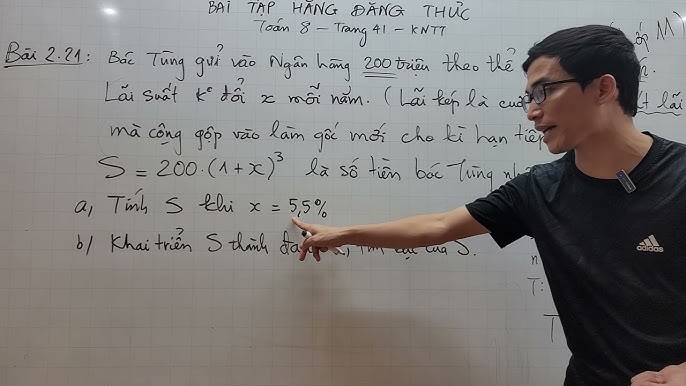 BÀI TẬP HẰNG ĐẲNG THỨC
Toán 8 - Trang 41 - KNTT
Bài 2.21: Bác Tùng gửi vào Ngân hàng 200 triệu theo thể
Lãi suất k° đổi x mỗi năm. (Lãi kép là
mà cộng gộp vào làm gốc mới cho kì hạn
S = 200.(1+x)³ là số tiền bác Tùng
a, Tính S khi x = 5,5%
b) Khai triển S thành của S.
adidas
T:
T